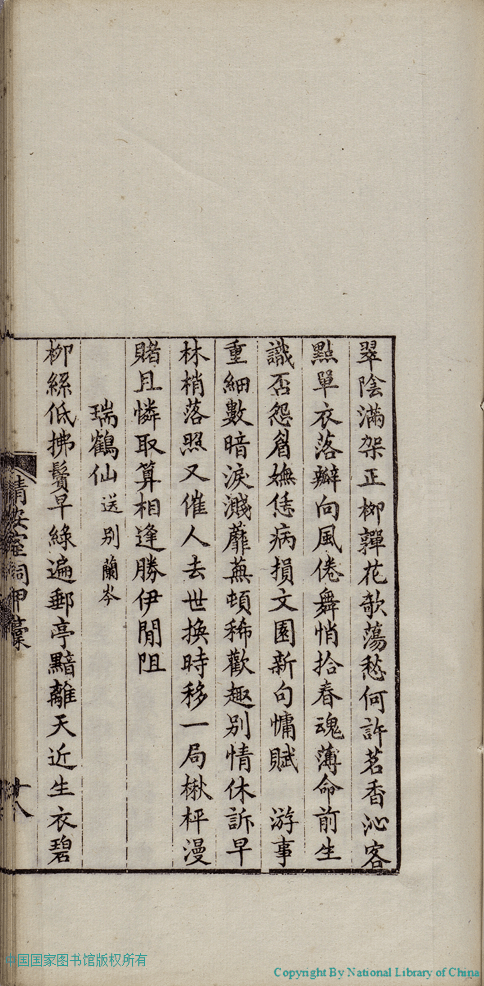 翠陰滿架正柳嚲花欹蕩愁何許茗香沁客
點單衣落瓣向風倦舞悄拾春魂薄命前生
識否怨眉嫵恁病損文園新句慵賦　游事
重細數暗淚濺蘼蕪頓稀歡趣別情休訴早
林梢落照又催人去世換時移一局楸枰漫
賭且憐取算相逢勝伊閒阻
瑞鶴仙 送别蘭岑
柳絲低拂鬢早綠遍郵亭黯離天近生衣碧
詞甲稾
十八
中国国家图书馆版权所有
Copyright By National Library of China